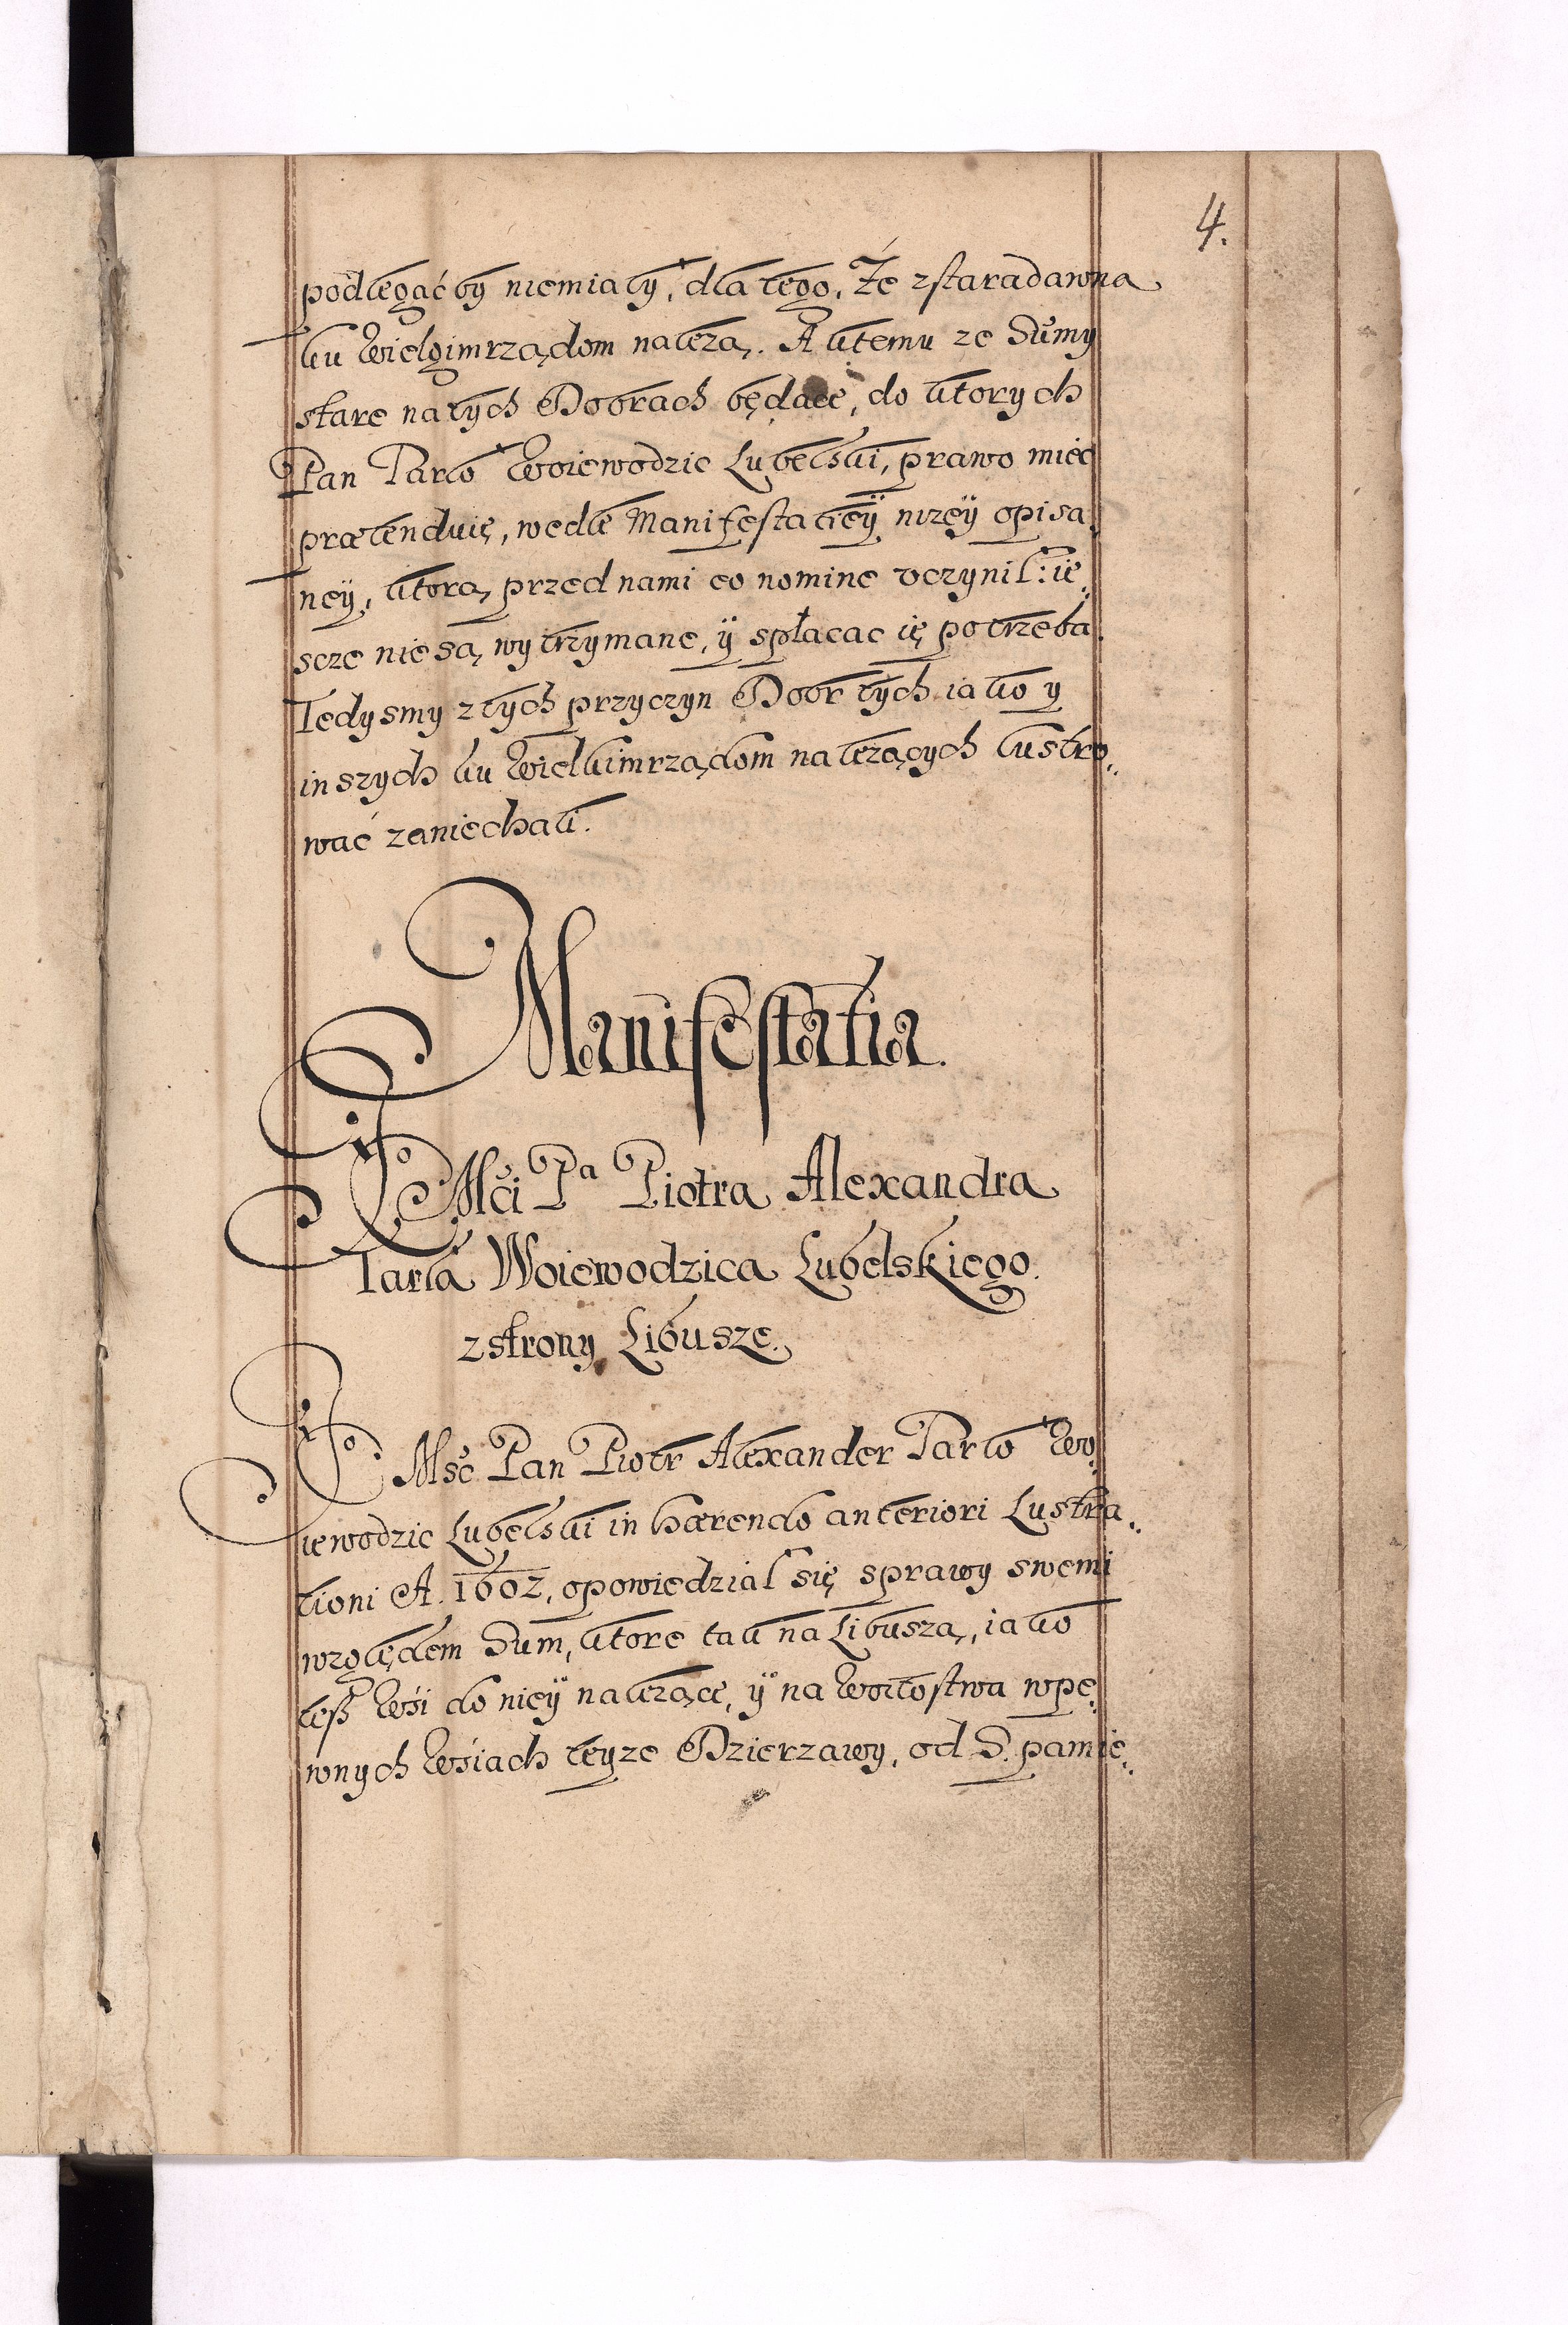 4.
podlegać by niemiały, dla tego, Że zstaradawna
ku Wielgimrządom należą. A ktemu ze Sumy
stare natych Dobrach będące, do ktorych
Pan Tarło Woiewodzic Lubelski, prawo mieć
prætenduię, wedle Manifestatieÿ niżeÿ opisa,
neÿ, ktorą przed nami eo nomine vczynił: ie,,
scze nie są wytrzymane, ÿ spłacac ię potrzeba.
Tedysmy z tych przyczyn Dobr tych iako y
inszych ku Wielkimrządom należących lustro,,
wać zaniechali.
Manifestatia.
JE Mści Pa Piotra Alexandra
Tarła Woiewodzica Lubelskiego.
z strony Libusze.
J Msć Pan Piotr Alexander Tarło Wo,,
iewodzic Lubelski in hærendo anteriori Lustra,,
tioni A. 1602, opowiedział się sprawy swemi
względem Sum, ktore tak na Libuszą, iako
tesz Wśi do nieÿ należące, ÿ na Woitostwa wpe,,
wnych Wśiach teyze Dzierzawy, od S. pamię,,